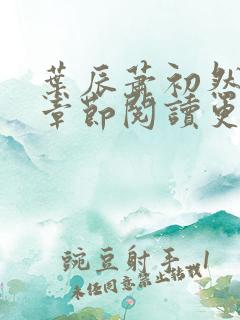 葉辰蕭初然
章節閱讀更
豌豆射手_1
未经同意禁止转载